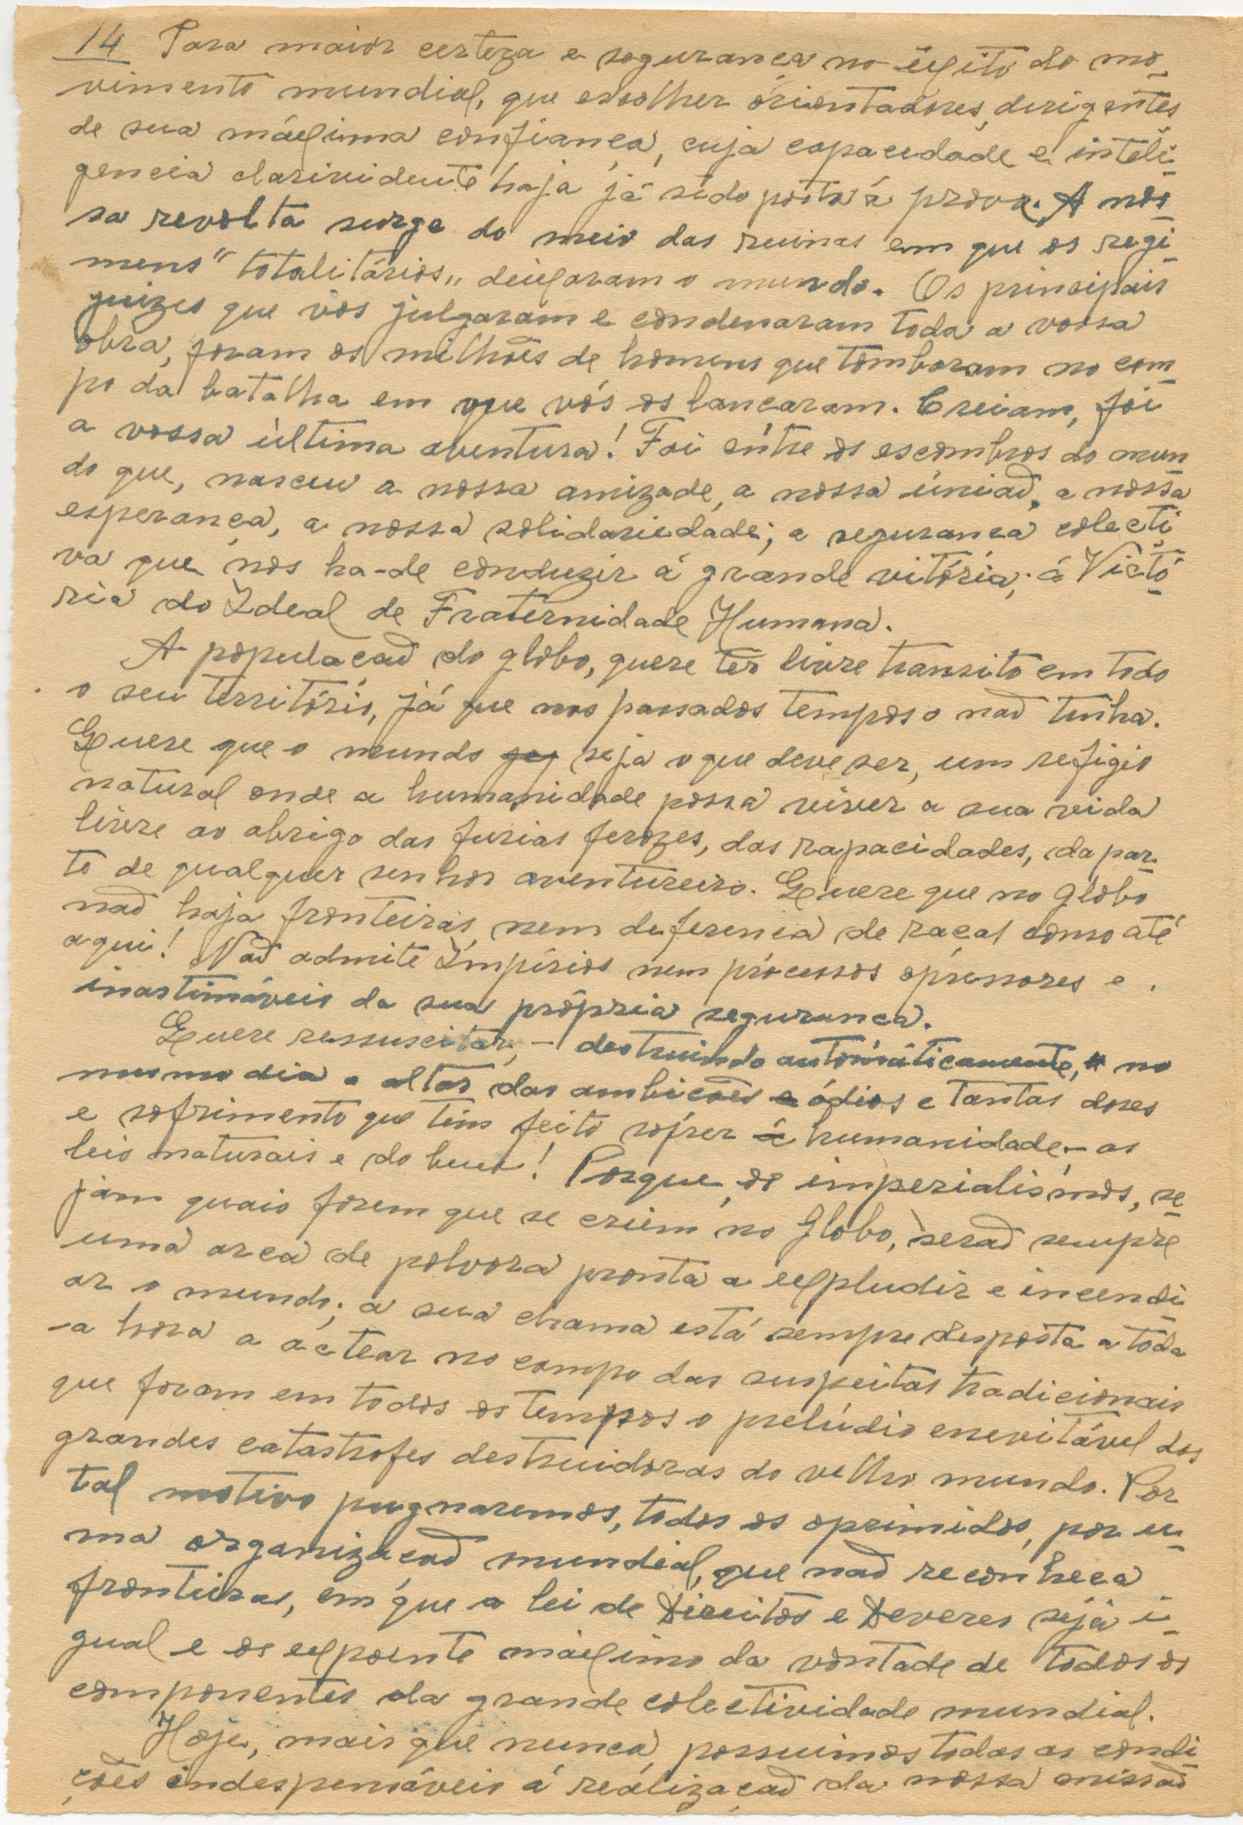 14 Para maior certeza e segurança no êxito do mo-
vimento mundial, que escolher orientadores, dirigentes
de sua máxima confiança, cuja capacidade e inteli-
gencia clarividente haja já sido posta á prova. A nos-
sa revolta surge do meio das ruinas em que os regi-
mens "totalitários" deixaram o mundo. Os principais
juizes que vos julgaram e condenaram toda a vossa
obra, foram os milhões de homens que tombaram no cam-
po da batalha em que vós os lançaram. Creiam, foi
a vossa última aventura! Foi entre os escombros do mun
do que, nasceu a nossa amizade, a nossa união, a nossa
esperança, a nossa solidariedade; a segurança colecti
va que nos ha-de conduzir á grande vitória; á Victó-
ria do Ideal de Fraternidade Humana.
A população do globo, quere ter livre transito em todo
o seu território, já que nos passados tempos o não tinha.
Quere que o mundo seja o que deve ser, um refigio
natural onde a humanidade possa viver a sua vida
livre ao abrigo das furias ferozes, das rapacidades, da par-
te de qualquer senhor aventureiro. Quere que no globo
não haja fronteiras, nem deferencia de raças como até
aqui! Não admite Impírios nem processos opressores e
inastimáveis da sua própria segurança.
Quere ressuscitar, - destruindo automáticamente, no
mesmo dia o altar das ambições e ódios e tantas dores
e sofrimento que tem feito sofrer á humanidade - as
leis naturais e do bem! Porque, os imperialismos, se-
jam quais forem que se criem no Globo, serão sempre
uma arca de polvora pronta a expludir e incendi-
ar o mundo; a sua chama está sempre desposta a toda
-a hora a actear no campo das suspeitas tradicionais
que foram em todos os tempos o prelúdio enevitável das
grandes catastrofes destruidoras do velho mundo. Por
tal motivo pugnaremos, todos os oprimidos, por u-
ma organização mundial, que não reconheça
fronteiras, em que a lei de Direitos e Deveres seja i-
gual e os expoente máximo da vontade de todos os
componentes da grande colectividade mundial.
Hoje, mais que nunca, possuimos todas as condi-
ções indespensáveis á realização da nossa missão